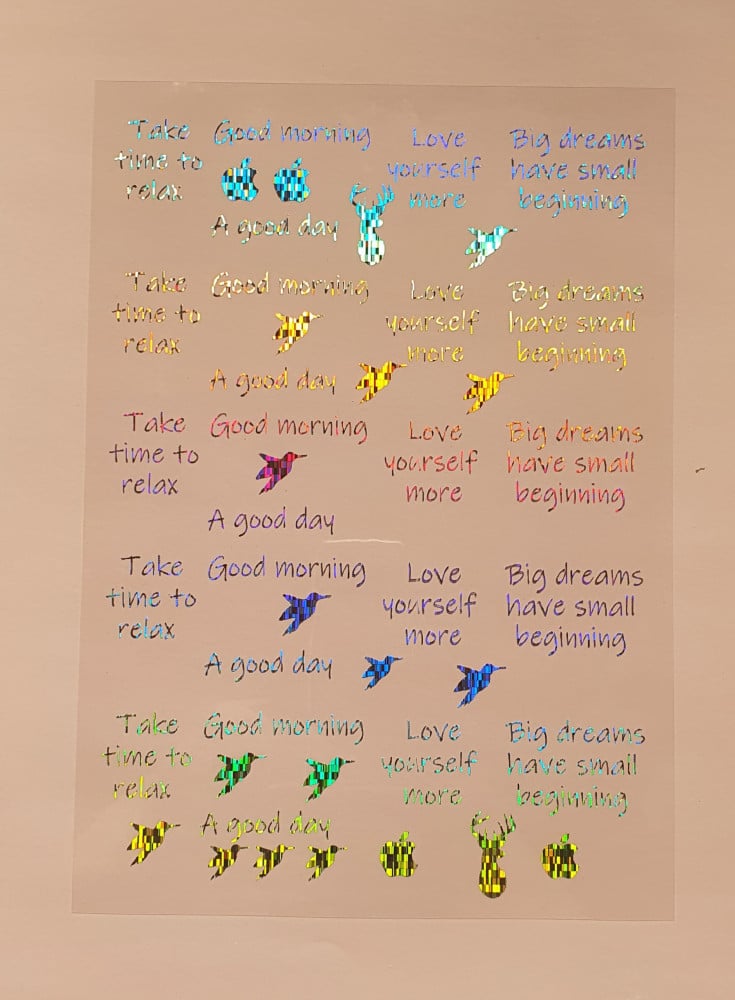 Take
time to
relax
Good morning
A good day
Love
yourself
more
Big dreams
have small
beginning
Take
time to
relax
Good morning
A good day
Love
yourself
more
Big dreams
have small
beginning
Take
time to
relax
Good morning
A good day
Love
yourself
more
Big dreams
have small
beginning
Take
time to
relax
Good morning
A good day
Love
yourself
more
Big dreams
have small
beginning
Take
time to
relax
Good morning
A good day
Love
yourself
more
Big dreams
have small
beginning